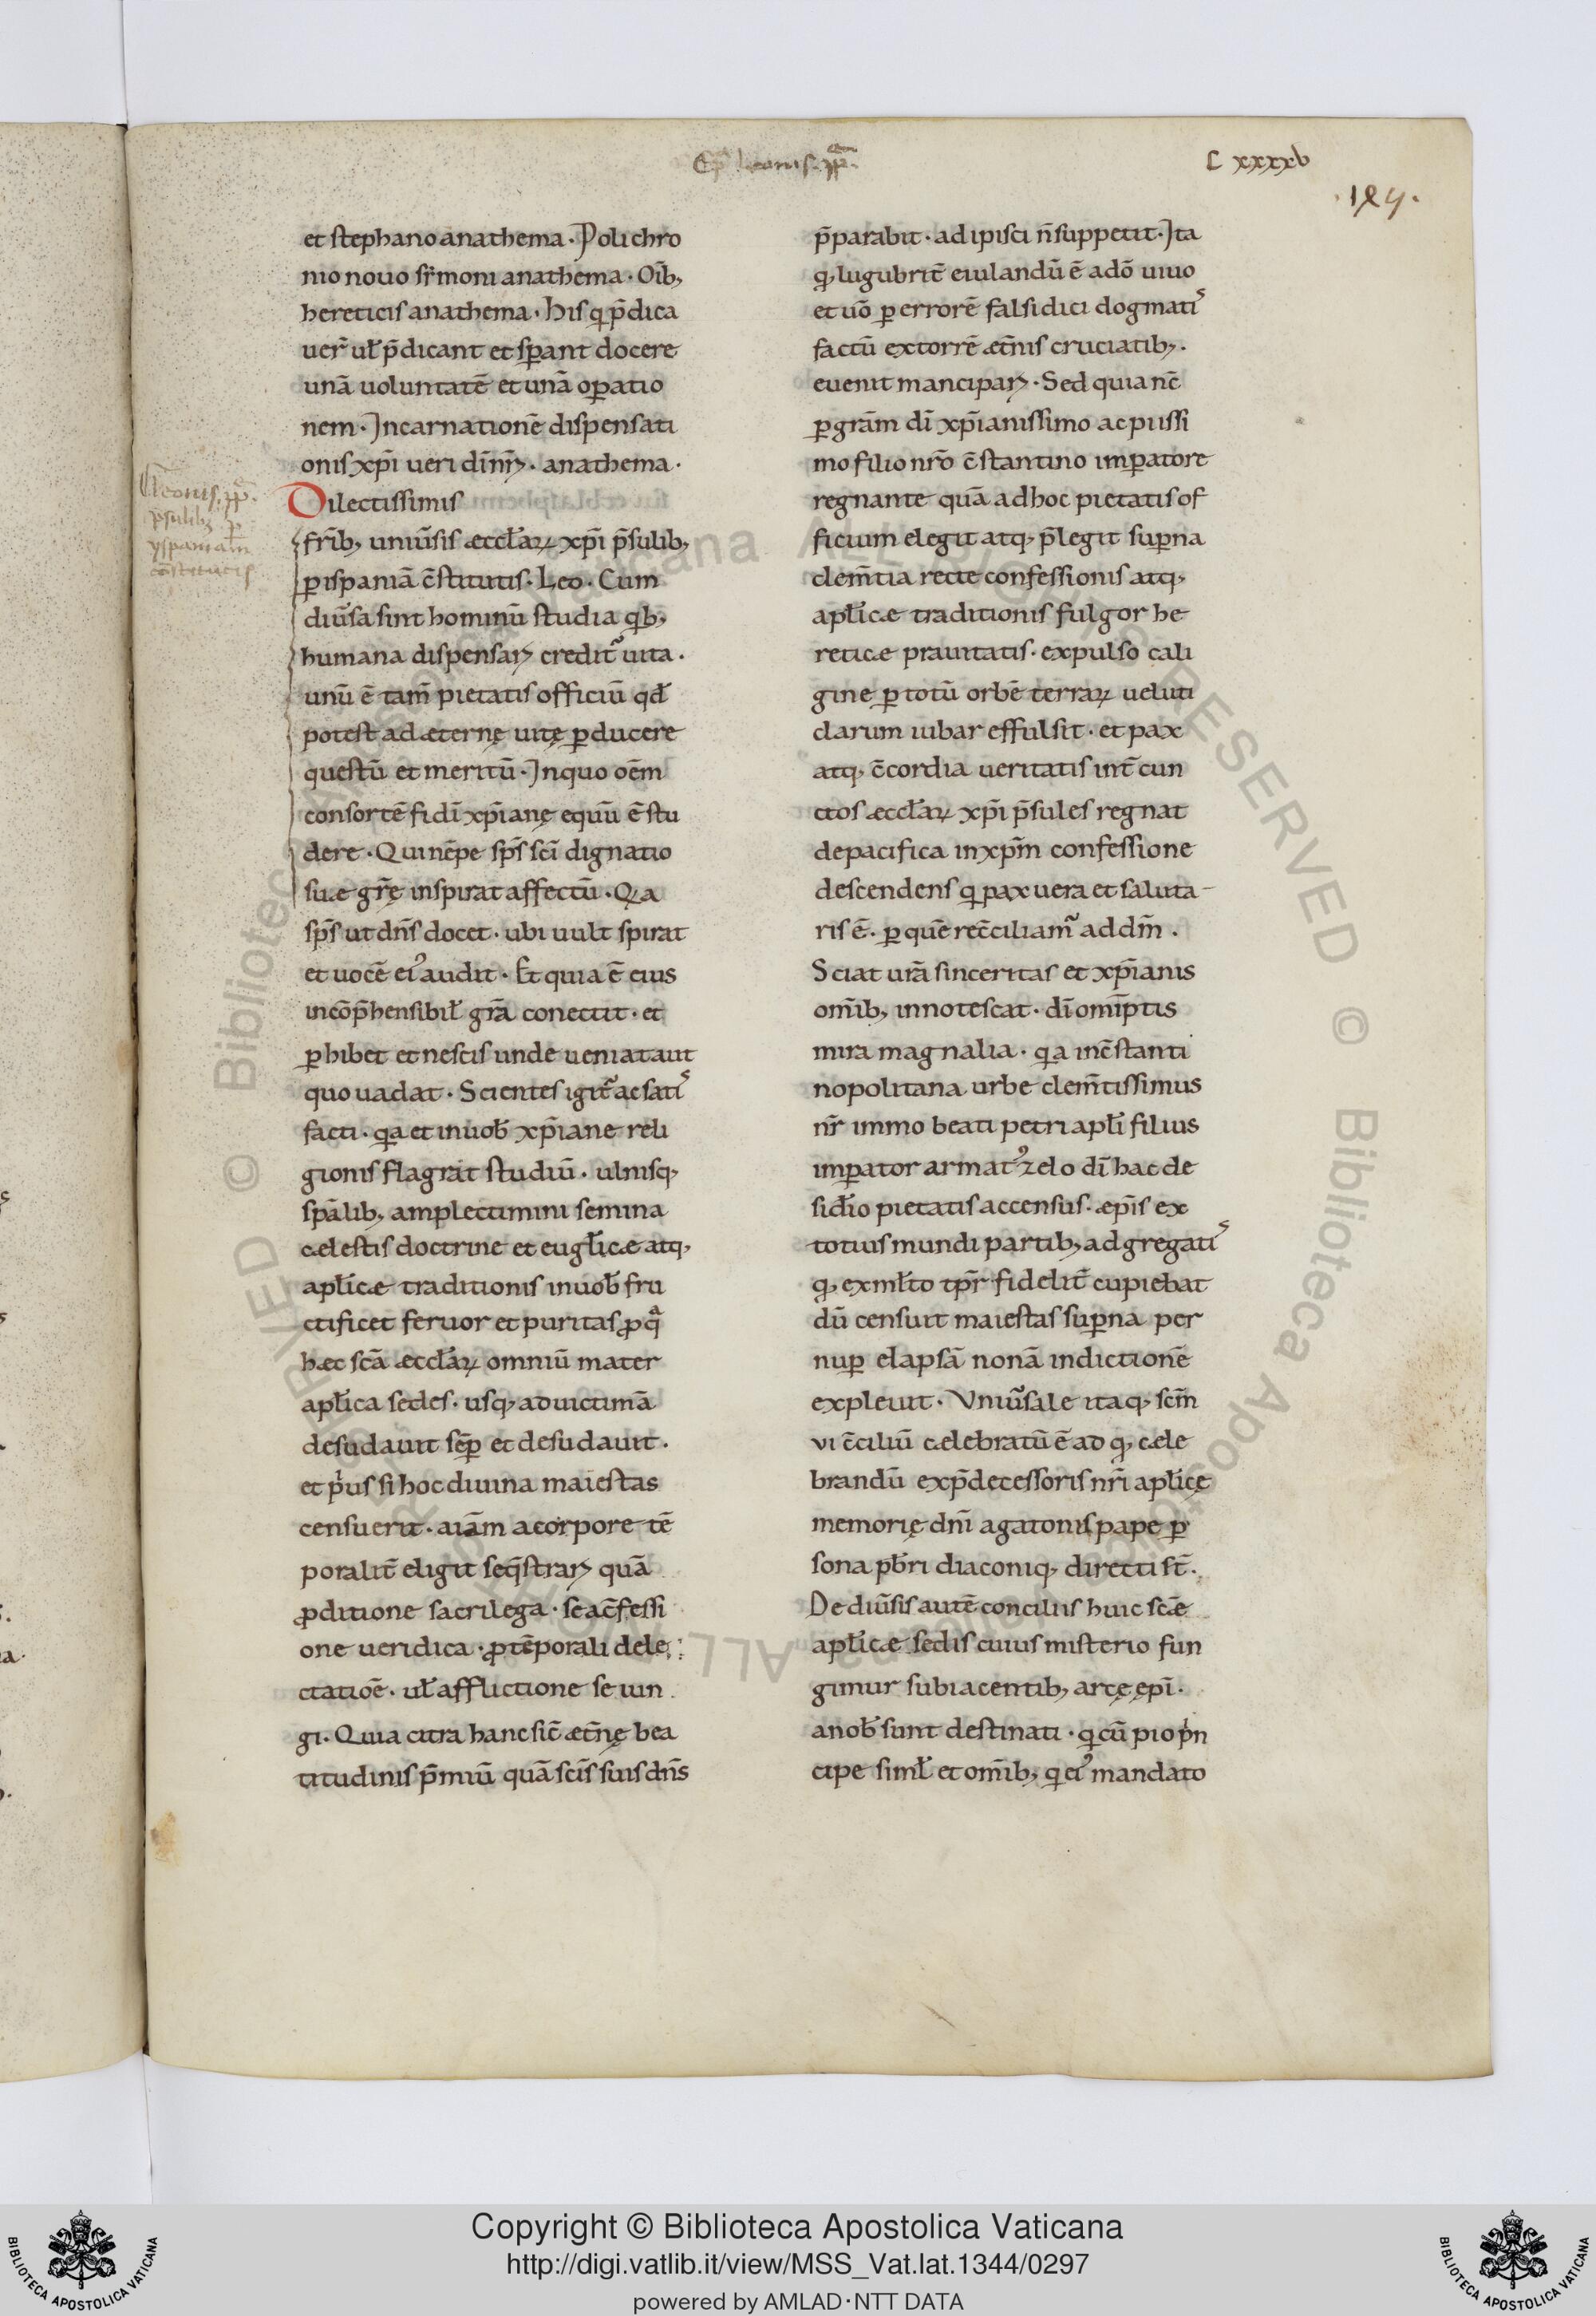 Ep̄ leonis. pp̄.
C xxxxv
.189.
et stephano anathema. Polichro
nio nouo sr̄moni anathema. Oīb;
hereticis anathema. His q p̄dica
uer̄ ul̄ p̄dicant et sꝑant docere
unā uoluntatē et unā oꝑatio
nem. Incarnationē dispensati
onis xp̄i ueri dn̄i nr̄i. anathema.
Dilectissimis
fr̄ib; uniūsis æccl̄aꝝ xp̄i p̄sulib;
ꝑ ispaniā c̄stitutis. Leo. Cum
diūsa sint hominū studia qb;
humana dispensari credit᷑ uita.
unū ē tam̄ pietatis officiū qd̄
potest ad æternę uitę ꝑducere
questū et meritū. Inquo oēm
consortē fidī xp̄ianę equū ē stu
dere. Qui nēpe sp̄s sc̄i dignatio
suæ gr̄ę inspirat affectū. Qa
sp̄s ut dn̄s docet. ubi uult spirat
et uocē eiꝰ audit. Et quia ē eius
incōp̄hensibil̄ gr̄a conectit. et
ꝑhibet et nescis unde ueniat aut
quo uadat. Scientes igit᷑ ac satis
facti. qa et in uob̄ xp̄iane reli
gionis flagrat studiū. ulnisq;
sp̄alib; amplectimini semina
cælestis doctrine et eugl̄icæ atq;
apl̄icæ traditionis in uob̄ fru
ctificet feruor et puritas ꝓ qa
hæc sc̄a æccl̄aꝝ omniū mater
apl̄ica sedes. usq; ad uictimā
desudauit sēꝑ et desudauit.
et pius si hoc diuina maiestas
censuerit. aīam a corpore tē
poralit̄ eligit seq̄strari quā
ꝓditione sacrilega. se a c̄fessi
one ueridica. ꝓ tēporali dele
ctatiōe. ul̄ afflictione se iun
gi. Quia citra hanc sic̄ æt̄nę bea
titudinis p̄miū quā sc̄is suis dn̄s
Leonis. pp̄.
p̄sulib; ꝑ
yspaniam
cōstitutis
p̄parabit. adipisci n̄ suppetit. Ita
q; lugubrit̄ eiulandū ē a dō uiuo
et uō ꝑ errorē falsidici dogmatis
factū extorrē æt̄nis cruciatib;.
euenit mancipari. Sed quia nc̄
ꝑ grām dī xp̄ianissimo ac piissi
mo filio nr̄o c̄stantino imꝑatore
regnante quā ad hoc pietatis of
ficium elegit atq; p̄legit suꝑna
clem̄tia recte confessionis atq;
apl̄icæ traditionis fulgor he
reticæ prauitatis. expulso cali
gine ꝑ totū orbē terraꝝ ueluti
clarum iubar effulsit. et pax
atq; c̄cordia ueritatis int̄ cun
ctos æccl̄aꝝ xp̄i p̄sules regnat
de pacifica in xp̄m confessione
descendens q pax uera et saluta-
ris ē. ꝑ quē rec̄ciliam᷑ ad dm̄.
Sciat ur̄a sinceritas et xp̄ianis
om̄ib; innotescat. dī omīptis
mira magnalia. qa in c̄stanti
nopolitana urbe clem̄tissimus
nr̄ immo beati petri apl̄i filius
imꝑator armatꝰ zelo dī hac de
sidīo pietatis accensus. æpīs ex
totius mundi partib; adgregatis
q; ex ml̄to tp̄r fidelit̄ cupiebat
dū censuit maiestas suꝑna per
nuꝑ elapsā nonā indictionē
expleuit. Uniūsale itaq; sc̄m
vi c̄ciliū cælebratū ē ad q; cæle
brandū ex p̄decessoris nr̄i apl̄icę
memorię dn̄i agatonis pape ꝑ
sona pb̄ri diaconiq; directi st̄.
De diūsis autē conciliis huic sc̄æ
apl̄icæ sedis cuius misterio fun
gimur subiacentib; arcę epī.
a nob̄ sunt destinati. q cū pio prin
cipe siml̄ et om̄ib; q eiꝰ mandato
Copyright © Biblioteca Apostolica Vaticana
http://digi.vatlib.it/view/MSS_Vat.lat.1344/0297
powered by AMLAD·NTT DATA